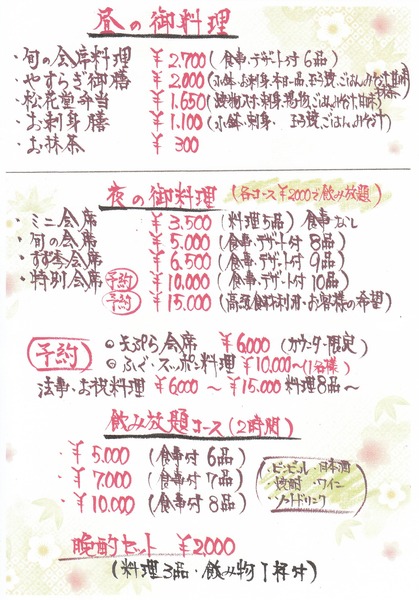 昼の御料理
・旬の会席料理 ¥2,700(食事・デザート付 6品)
・やすらぎ御膳 ¥2,000
・松花堂弁当 ¥1,650
・お刺身膳 ¥1,100
・お抹茶 ¥300
夜の御料理 (各コース¥2000で飲み放題)
・ミニ会席 ¥3,500(料理5品)食事なし
・旬の会席 ¥5,000(食事・デザート付 8品)
会席 ¥6,500(食事・デザート付 9品)
・特別会席 予約 ¥10,000(食事・デザート付 10品)
予約 ¥15,000(高級食材利用・お客様の希望)
予約 ◎天ぷら会席 ¥6,000(カウンター限定)
◎ふぐ・スッポン料理 ¥10,000〜(1名様)
法事・お祝料理 ¥6,000〜¥15,000 料理8品〜
飲み放題コース(2時間)
・¥5,000(食事付 6品)
・¥7,000(食事付 7品)
・¥10,000(食事付 8品)
・ビンビール・日本酒
・焼酎・ワイン
・ソフトドリンク
晩酌セット ¥2,000
(料理3品・飲み物1杯付)